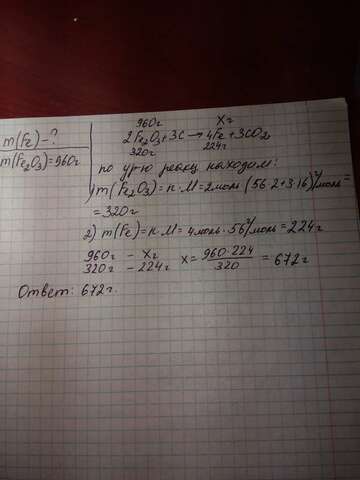 m(Fe)-?
m(Fe₂O₃)=960г
960г xг
2Fe₂O₃+3C→4Fe+3CO₂
320г 224г
по ур-ю реакц находим:
1) m(Fe₂O₃)=n·M=2моль·(56·2+3·16)г/моль=
=320г
2) m(Fe)=n·M=4моль·56г/моль=224г
960г - xг
320г - 224г x=960·224/320=672г
Ответ: 672г.